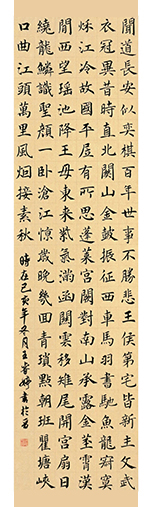 聞道長安似奕棋百年世事不勝悲王侯第宅皆新主文武
衣冠異昔時直北關山金鼓振征西車馬羽書馳魚龍寂寞
秋江冷故國平居有所思蓬萊宮闕對南山承露金莖霄漢
間西望瑤池降王母東來紫氣滿函關雲移雉尾開宮扇日
繞龍鱗識聖顏一卧滄江驚歲晚幾回青瑣點朝班瞿塘峽
口曲江頭萬里風烟接素秋 時在己亥年冬月王